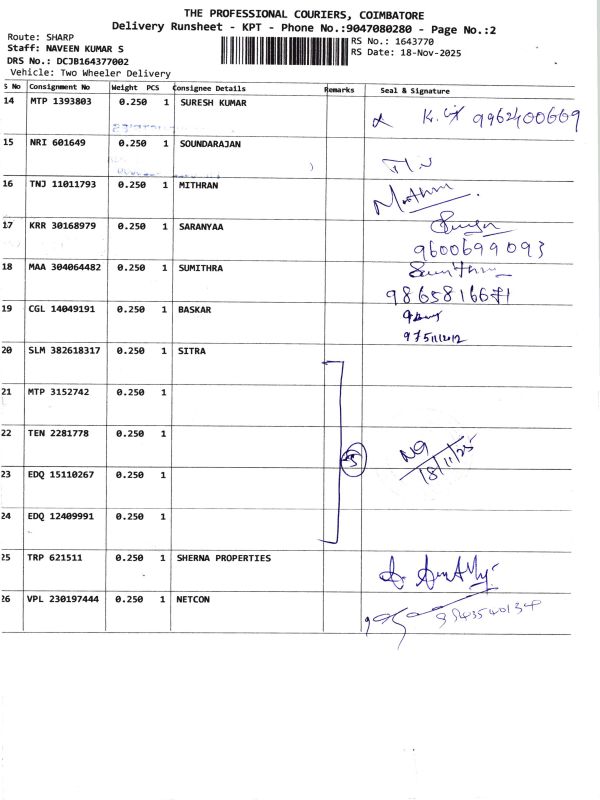 THE PROFESSIONAL COURIERS, COIMBATORE
Delivery Runsheet - KPT - Phone No.:9047080280 - Page No.:2
Route: SHARP
Staff: NAVEEN KUMAR S
DRS No.: DCJB164377002
Vehicle: Two Wheeler Delivery
RS No.: 1643770
RS Date: 18-Nov-2025
S No Consignment No Weight PCS Consignee Details Remarks Seal & Signature
14 MTP 1393803 0.250 1 SURESH KUMAR 9962400669
15 NRI 601649 0.250 1 SOUNDARAJAN
16 TNJ 11011793 0.250 1 MITHRAN
17 KRR 30168979 0.250 1 SARANYAA
9600699093
18 MAA 304064482 0.250 1 SUMITHRA Sumithra
9865816671
19 CGL 14049191 0.250 1 BASKAR
20 SLM 382618317 0.250 1 SITRA
21 MTP 3152742 0.250 1
22 TEN 2281778 0.250 1
5 18/11/25
23 EDQ 15110267 0.250 1
24 EDQ 12409991 0.250 1
25 TRP 621511 0.250 1 SHERNA PROPERTIES
26 VPL 230197444 0.250 1 NETCON